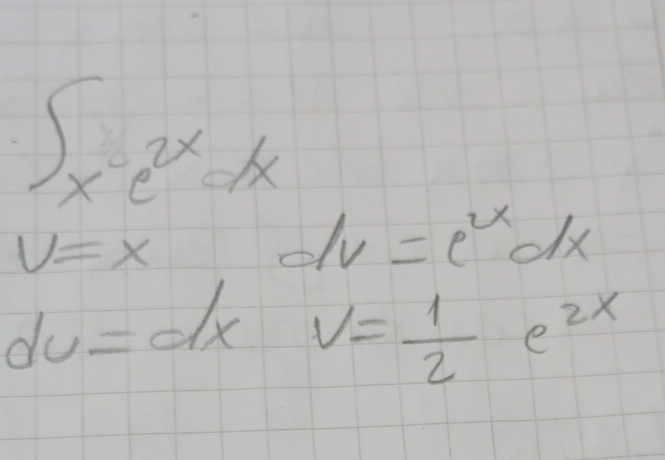 ∫x e^{2x} dx
u=x dv=e^{2x}dx
du=dx v=\frac{1}{2} e^{2x}